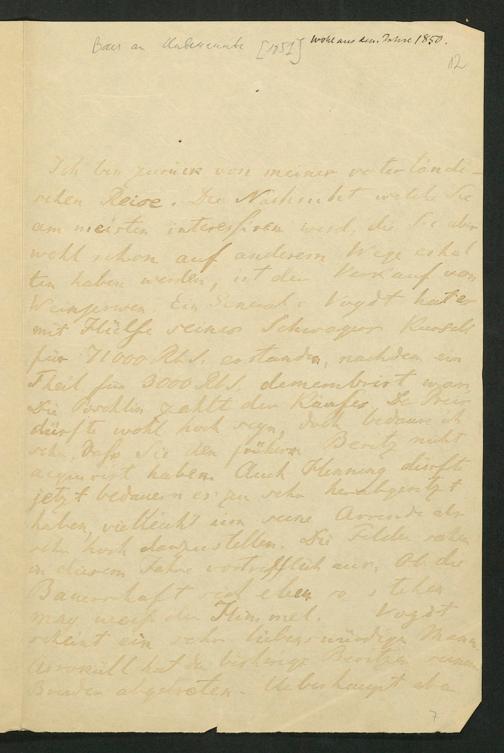 Baer an Unbekannte [1851] Wohl aus dem Jahre 1850.
12
Ich bin zurück von meiner vaterländi-
schen Reise. Die Nachricht welche Sie
am meisten interessiren wird, die Sie aber
wohl schon auf anderem Wege erhal
ten haben werden, ist der Verkauf von
Ein General v. Vogdt hat es
mit Hülfe seines Schwagers Kursell
für 71000 Rbl S. erstanden, nachdem ein
Theil für 3000 Rbl S. demembrirt war.
Die zahlt der Käufer. Der Preis
dürfte wohl hoch seyn, doch bedaure ich
sehr, daß Sie den frühern Besitz nicht
acquirirt haben. Auch Henning dürfte
jetzt bedauern es zu sehr herabgesetzt
haben, vielleicht um seine Arrende als
sehr hoch darzustellen. Die Felder sahen
in diesem Jahre vortrefflich aus. Ob die
Bauerschaft sich eben so stehen
mag weiß der Himmel. Vogdt
scheint ein sehr liebenswürdiger Mann
hat der bisherige Besitzer seinem
Bruder abgetreten. Ueberhaupt aber
7